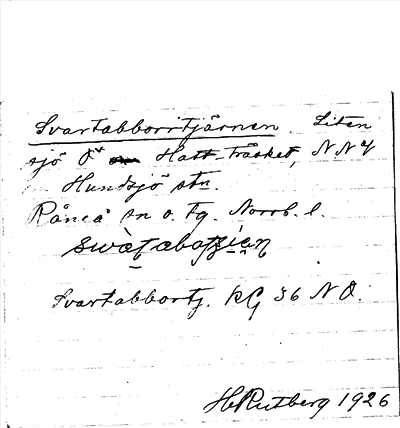 Svartabborrtjärnen. Liten
sjö O Hatt-träsket, NNV
Hundsjö stn.
Råneå sn o. tg. Norrb. l.
Svartabbortj. KG 36 NO.
HRutberg 1926